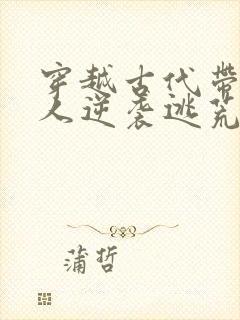 穿越古代带
人逆袭逃荒
蒲哲